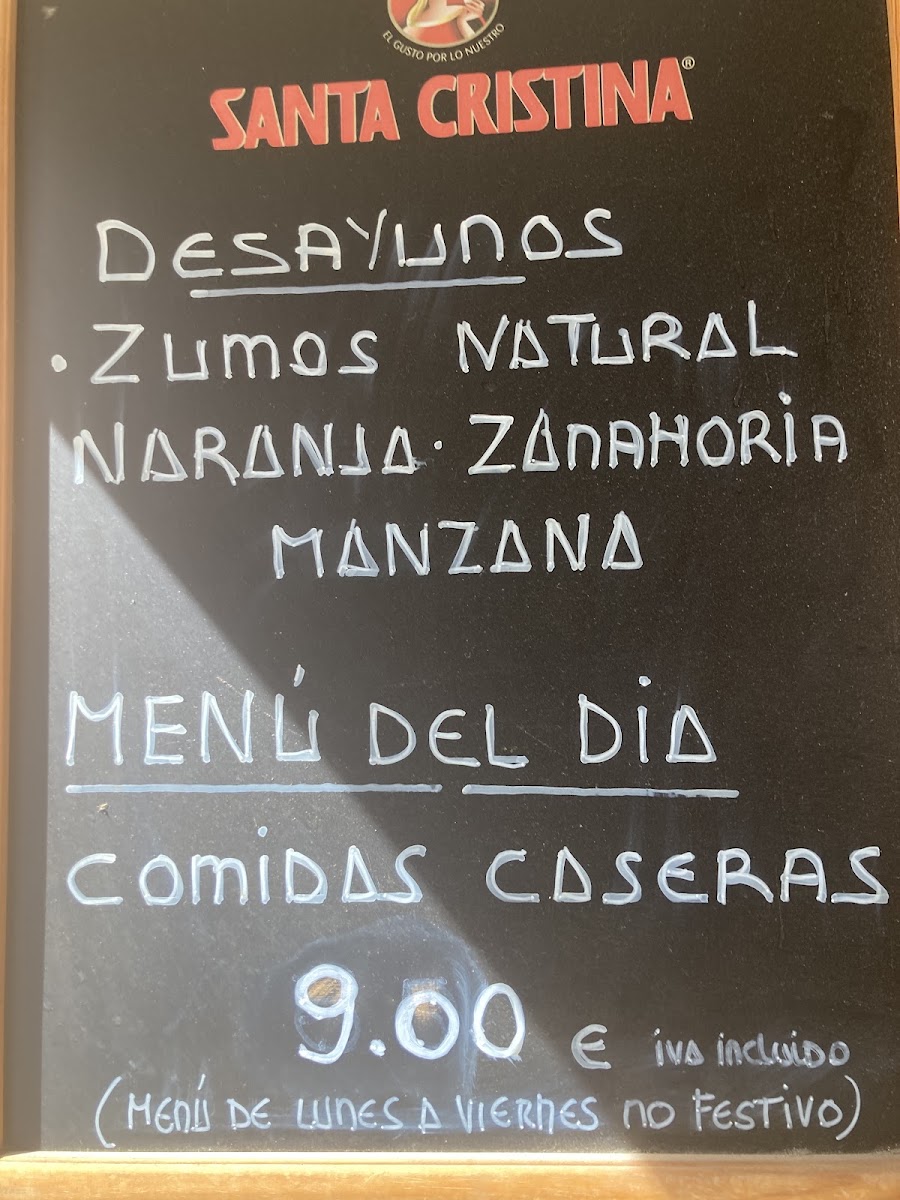 EL GUSTO POR LO NUESTRO
SANTA CRISTINA®
DESAYUNOS
· ZUMOS NATURAL
NARANJA · ZANAHORIA
MANZANA
MENÚ DEL DIA
COMIDAS CASERAS
9.00 € iva incluido
(MENÚ DE LUNES A VIERNES NO FESTIVO)